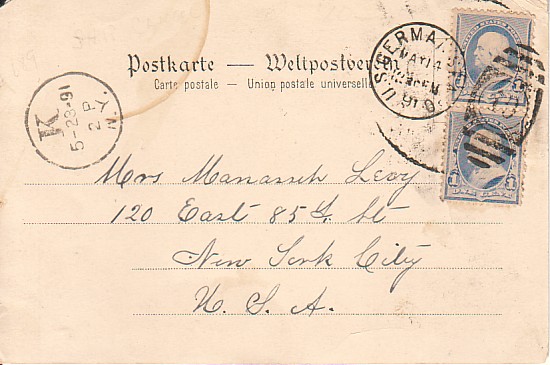 Postkarte — Weltpostverein
Carte postale — Union postale universelle
U.S. GERMAN SEA
MAY 14
91
K
5-23-91
2 P
N.Y.
Mrs Manasseh Levy
120 East 85th St
New York City
U. S. A.